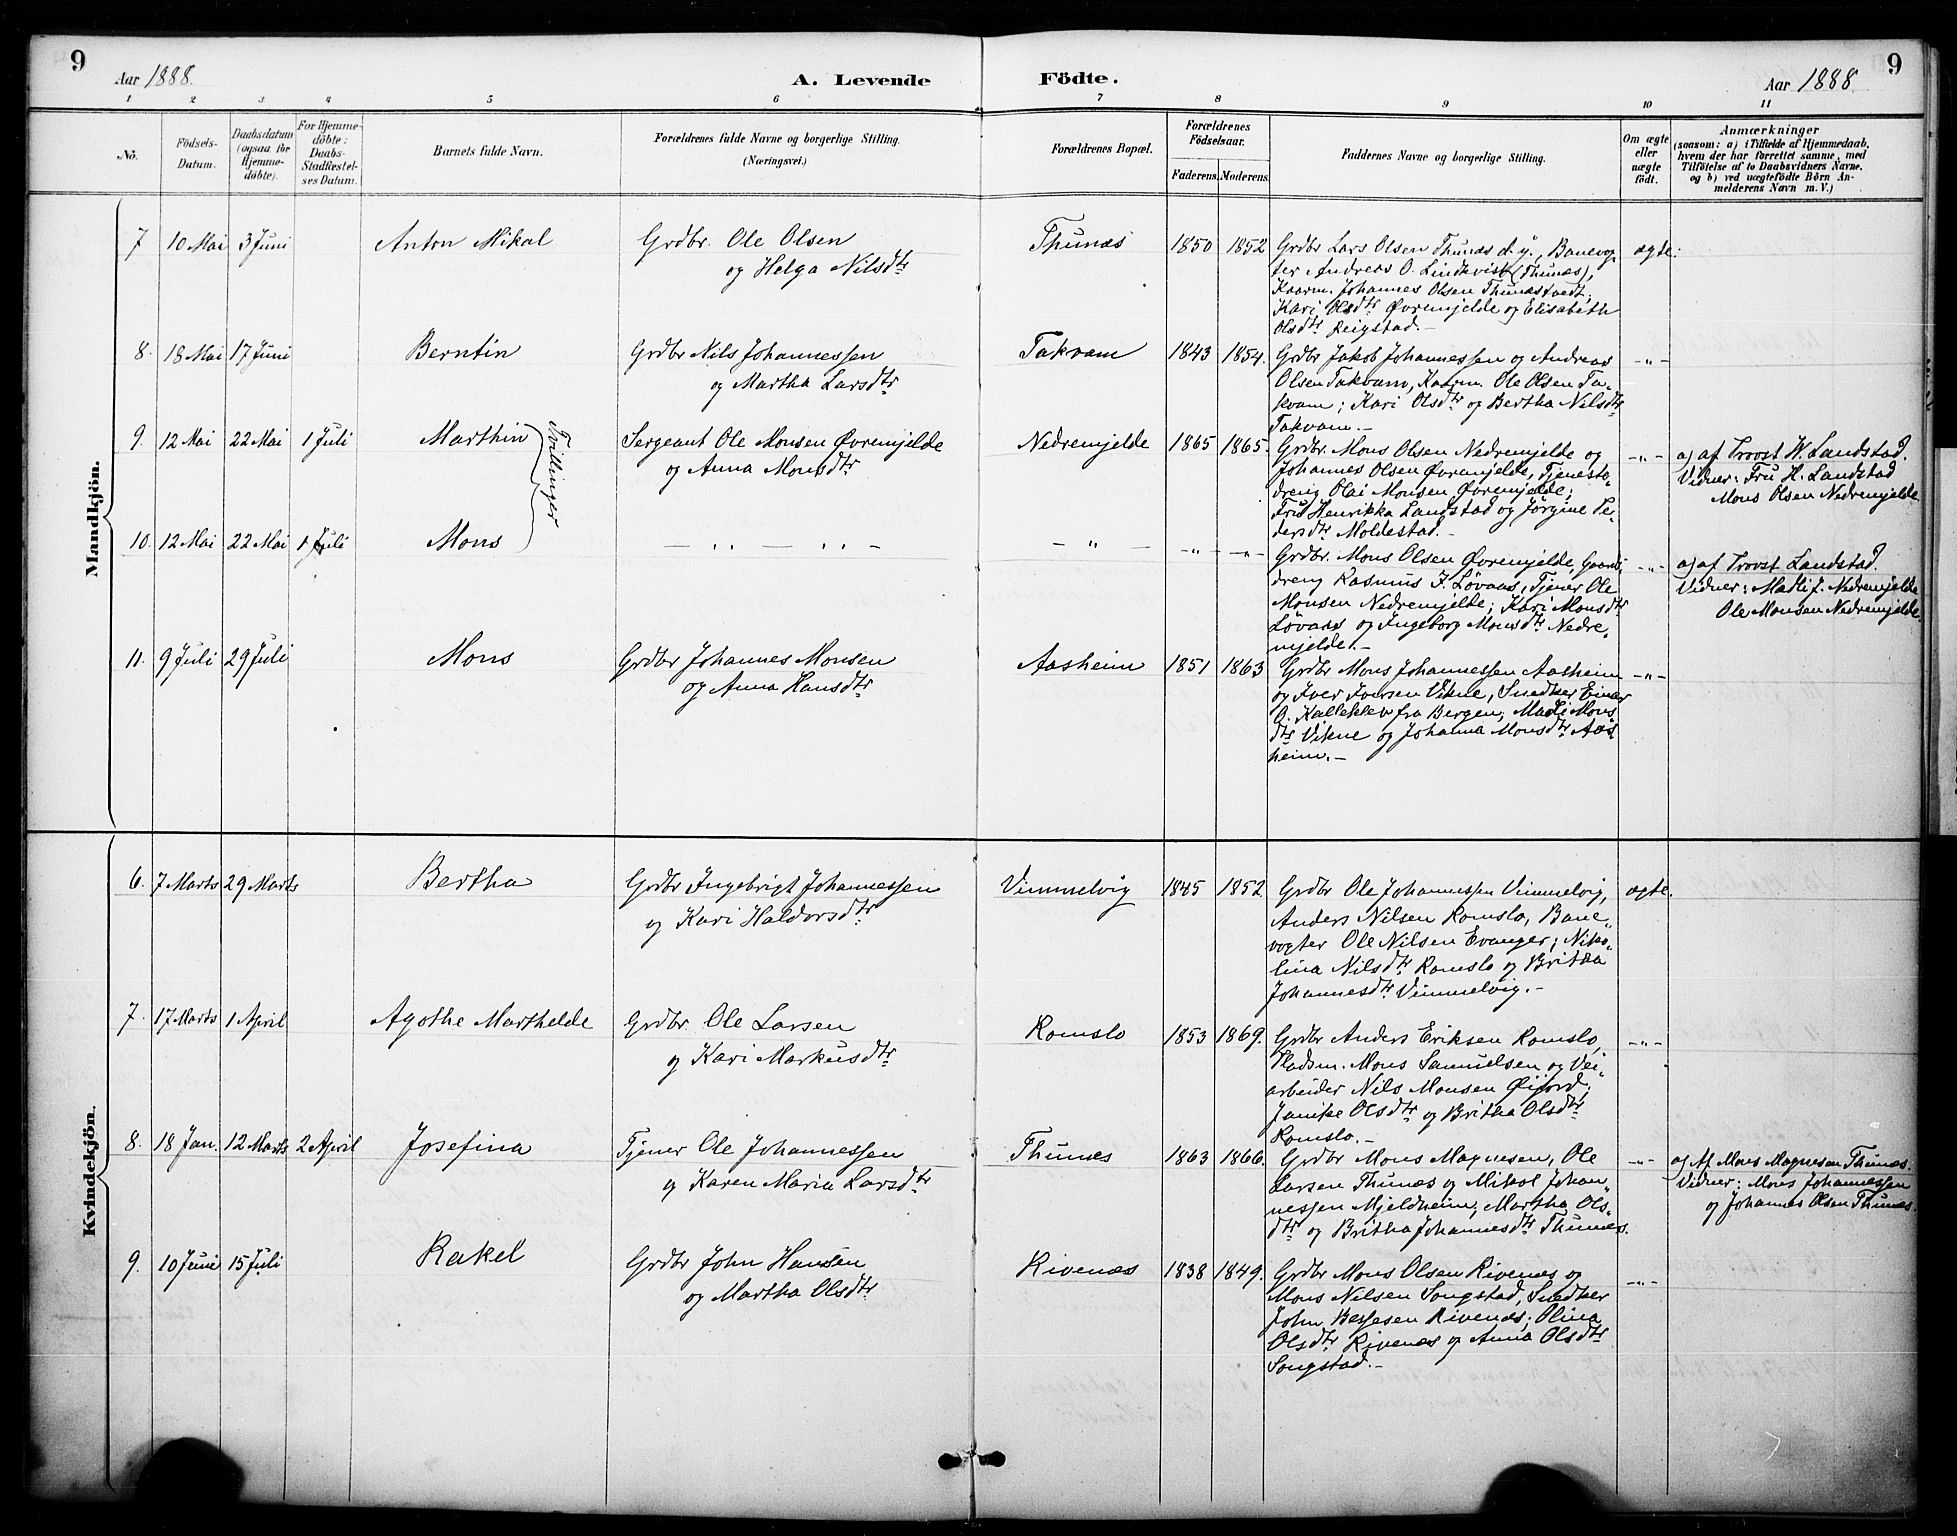 9
Aar 1888.
A. Levende Födte.
Aar 1888.
9
1 2 3 4 5 6 7 8 9 10 11
No.
Födsels-
Datum.
Daabsdatum
(ogsaa for
Hjemme-
döbte).
For Hjemme-
döbte:
Daabs-
Stadfæstel-
ses Datum.
Barnets fulde Navn.
Forældrenes fulde Navne og borgerlige Stilling.
(Næringsvei.)
Forældrenes Bopæl.
Forældrenes
Födselsaar.
Faderens. Moderens.
Faddernes Navne og borgerlige Stilling.
Om ægte
eller
uægte
født.
Anmærkninger
(saasom: a) i Tilfælde af Hjemmedaab,
hvem der har forrettet samme, med
Tilföielse af to Daabsvidners Navne,
og b) ved uægtefödte Börn An-
melderens Navn m. V.)
Mandkjön.
7 10 Mai 3 Juni Anton Mikal
Grdbr. Ole Olsen
og Helga Nilsdtr
Thunæs 1850 1852
Grdbr Lars Olsen Thunæs d. y., Banevog
ter Andreas O. Lindkvist (Thunæs),
Kaarm. Johannes Olsen Thunæstvedt;
Kari Olsdtr Øvremjelde og Elisabeth
Olsdtr Reigstad.-
ægte.
8. 18 Mai 17 Juni Berntin
Grdbr Nils Johannessen
og Martha Larsdtr
Takvam 1843 1854.
Grdbr Jakob Johannessen og Andreas
Olsen Takvam, Kaarm. Ole Olsen Ta-
kvam; Kari Olsdtr og Bertha Nilsdtr
Takvam.-
-"-
9. 12 Mai 22 Mai 1 Juli Marthin
Tvillinger
Sergeant Ole Monsen Øvremjelde
og Anna Monsdtr
Nedremjelde 1865 1865.
Grdbr. Mons Olsen Nedremjelde og
Johannes Olsen Øvremjelde, Tjeneste-
dreng Olai Monsen Øvremjelde;
Fru Henrikka Landstad og Jørgine Pe-
dersdtr Moldestad.-
-"-
a) af Provst W. Landstad.
Vidner: Fru H. Landstad
Mons Olsen Nedremjelde.
10. 12 Mai 22 Mai 1 Juli Mons
- " - " - - " - -"- -"-
Grdbr. Mons Olsen Øvremjelde, Gaards
dreng Rasmus J. Løvaas, Tjener Ole
Monsen Nedremjelde; Kari Monsdtr
Løvaas og Ingeborg Monsdtr Nedre-
mjelde.-
-"-
a) af Provst Landstad.
Vidner: Madli J. Nedremjelde
Ole Monsen Nedremjelde.
11. 9 Juli 29 Juli Mons
Grdbr Johannes Monsen
og Anna Hansdtr
Aasheim 1851 1863
Grdbr Mons Johannessen Aasheim
og Iver Iversen Vikne, Snedker Einar
O. Kalleklev fra Bergen; Madli Mons
dtr Vikne og Johanna Monsdtr Aas-
heim.-
-"-
Kvindekjön.
6. 7 Marts 29 Marts Bertha
Grdbr Ingebrigt Johannessen
og Kari Haldorsdtr
Vimmelvig 1845 1852.
Grdbr Ole Johannessen Vimmelvig,
Anders Nilsen Romslo, Bane-
vogter Ole Nilsen Evanger; Niko-
lina Nilsdtr Romslo og Britha
Johannesdtr Vimmelvig.-
ægte.
7. 17 Marts 1 April Agothe Marthelde
Grdbr. Ole Larsen
og Kari Markusdtr
Romslo 1853 1869.
Grdbr Anders Eriksen Romslo,
Pladsm. Mons Samuelsen og Vei-
arbeider Nils Monsen Øifjord;
Janike Olsdtr og Britha Olsdtr
Romslo.-
-"-
8. 18 Jan. 12 Marts 2 April Josefina
Tjener Ole Johannessen
og Karen Maria Larsdtr
Thunæs 1863 1866.
Grdbr Mons Magnesen, Ole
Larsen Thunæs og Mikal Johan-
nessen Mjeldheim; Martha Ols-
dtr og Britha Johannesdtr Thunæs.
-"-
a) Af Mons Magnesen Thunæs.
Vidner: Mons Johannessen
og Johannes Olsen Thunæs.
9. 10 Juni 15 Juli Rakel
Grdbr John Hansen
og Martha Olsdtr
Rivenæs 1838 1849.
Grdbr Mons Olsen Rivenæs og
Mons Nilsen Songstad, Snedker
John Børgesen Rivenæs; Olina
Olsdtr Rivenæs og Anna Olsdtr
Songstad.-
-"-